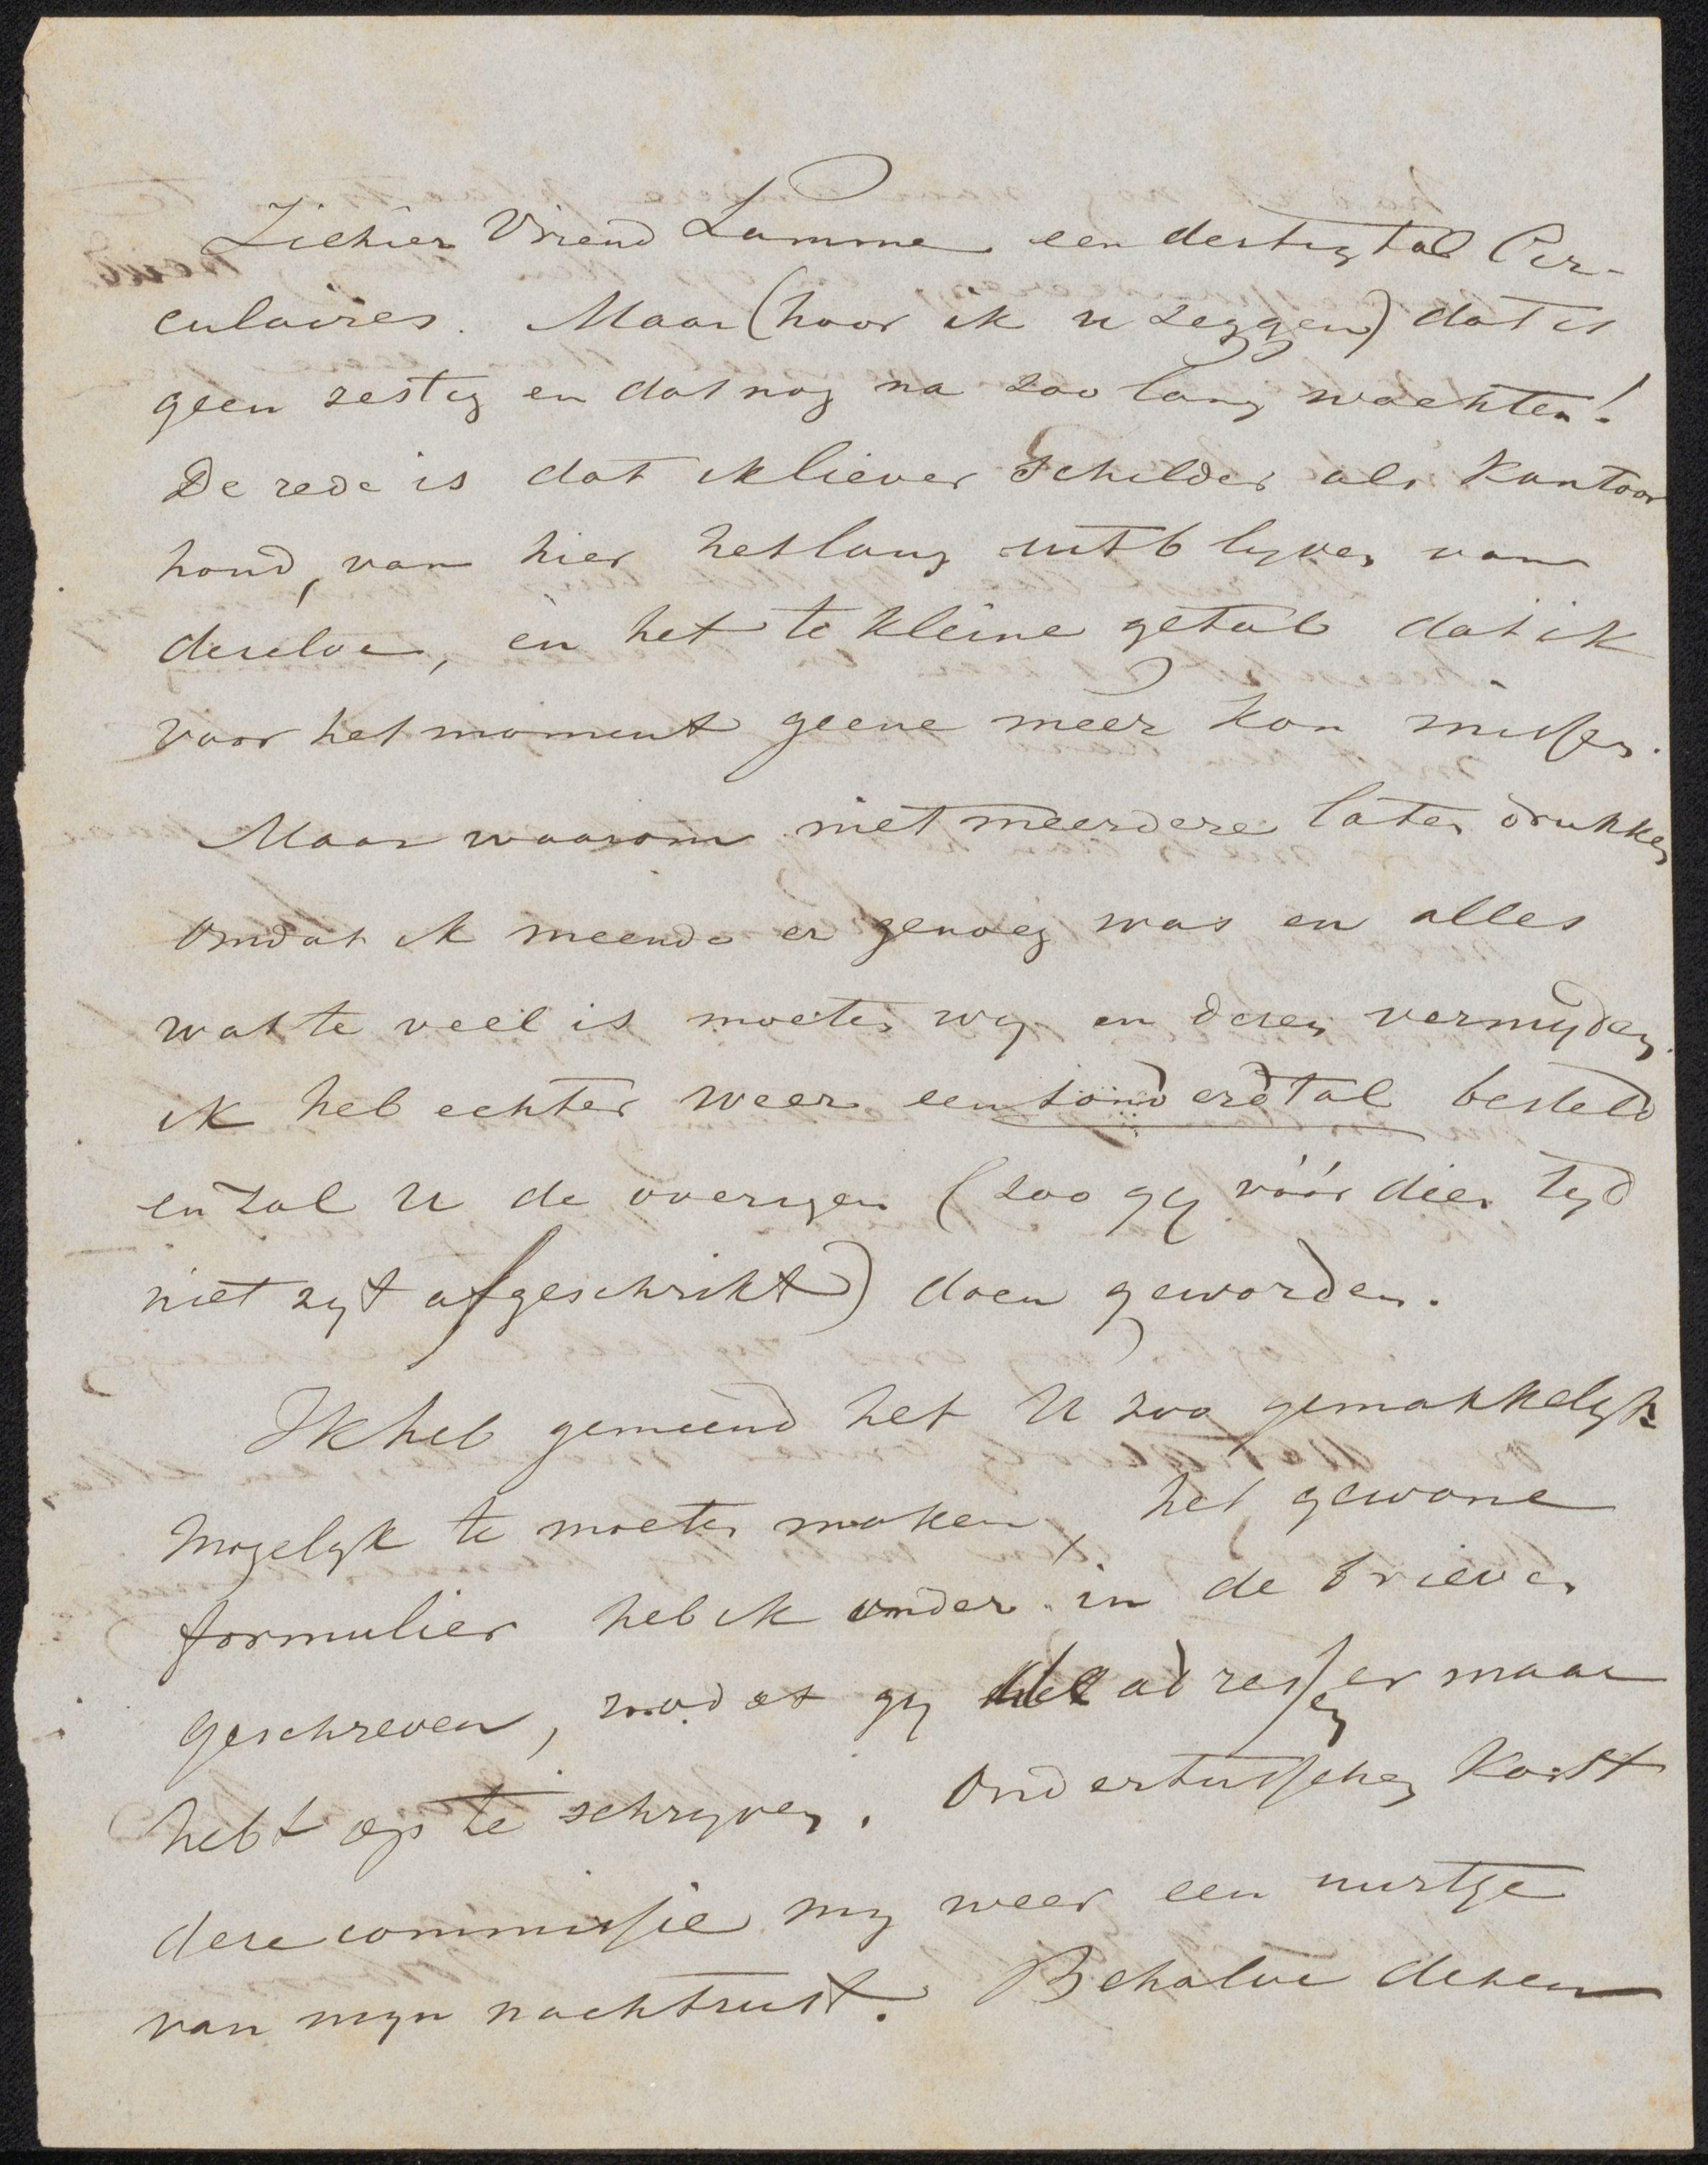 Ziehier Vriend Lamme een dertigtal Cir-
culaires. Maar (hoor ik u zeggen) dat is
geen zestig en dat nog na zoo lang wachten!
De rede is dat ik liever Schilder als Kantoor
hond, van hier het lang uitblyven van
dezelve, en het te kleine getal dat ik
voor het moment geene meer kon missen.
Maar waarom niet meerdere laten drukken
omdat ik meende er genoeg was en alles
wat te veel is moeten wy en deren vermyden.
ik heb echter weer een honderdtal besteld
en zal U de overigen (zoo gy vóór dien tyd
niet zyt afgeschrikt) doen geworden.
Ik heb gemeend het U zoo gemakkelyk
mogelyk te moeten maken, het gewone
formulier heb ik onder in de brieven
geschreven, zoodat gy de adressen er maar
hebt op te schryven. Ondertusschen kost
deze commissie my weer een uurtje
van myn nachtrust. Behalve dezen